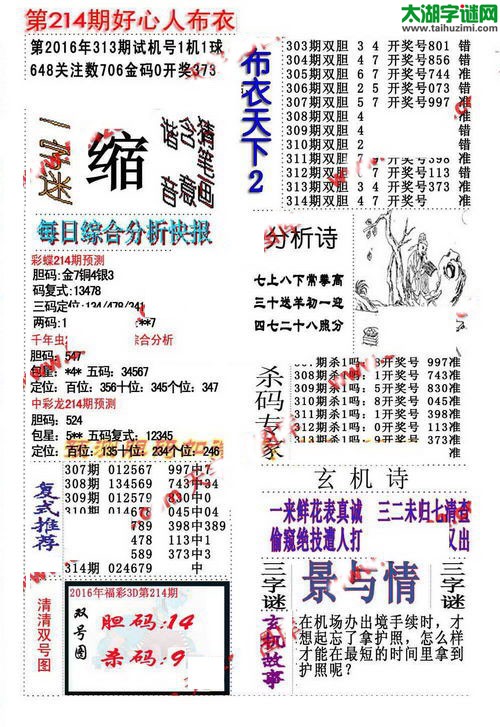 太湖字谜网
www.taihuzimi.com
第214期好心人布衣
第2016年313期试机号1机1球
648关注数706金码0开奖373
一字迷
缩
猜含音
猜笔画意
每日综合分析快报
彩蝶214期预测
胆码:金7铜4银3
码复式:13478
三码定位:134/478/341
两码:1 :**7
千年虫 综合分析
胆码: 547
包星: *** 五码: 34567
定位: 百位: 356十位: 345个位: 347
中彩龙214期预测
胆码: 524
包星: 5** 五码复式: 12345
定位: 百位: 135十位: 234个位: 246
复式推荐
307期 012567 997中7
308期 034578 743中
309期 024567 830中0
310期 014678 045中
789 398中389
478 113中1
589 373中3
314期 024679
清清双号图
2016年福彩3D第214期
双号图
胆码:14
杀码:9
布衣天下2
303期双胆 3 4 开奖号801 错
304期双胆 4 7 开奖号856 错
305期双胆 6 7 开奖号744 准
306期双胆 2 5 开奖号073 错
307期双胆 5 7 开奖号997 准
308期双胆 4 错
309期双胆 4 错
310期双胆 2 错
311期双胆 4 7 开奖号398 错
312期双胆 4 7 开奖号113 错
313期双胆 4 7 开奖号373 准
314期双胆 4 7 开奖号
分析诗
七上八下常掌高
三十送羊初一迎
四七二十八照分
杀码专家
307期杀1吗: 3开奖号 997准
308期杀1吗: 1开奖号 743准
309期杀1吗: 4开奖号 830准
310期杀1吗: 8开奖号 045准
311期杀1吗: 2开奖号 398准
312期杀1吗: 0开奖号 113准
313期杀1吗: 9开奖号 373准
314期杀1吗: 开奖号
玄机诗
一来鲜花表真诚 三二未归七清查
偷窥绝技遭人打 又出
三字谜
景与情
三字谜
玄机故事
在机场办出境手续时，才
想起忘了拿护照，怎么样
才能在最短的时间里拿到
护照呢？